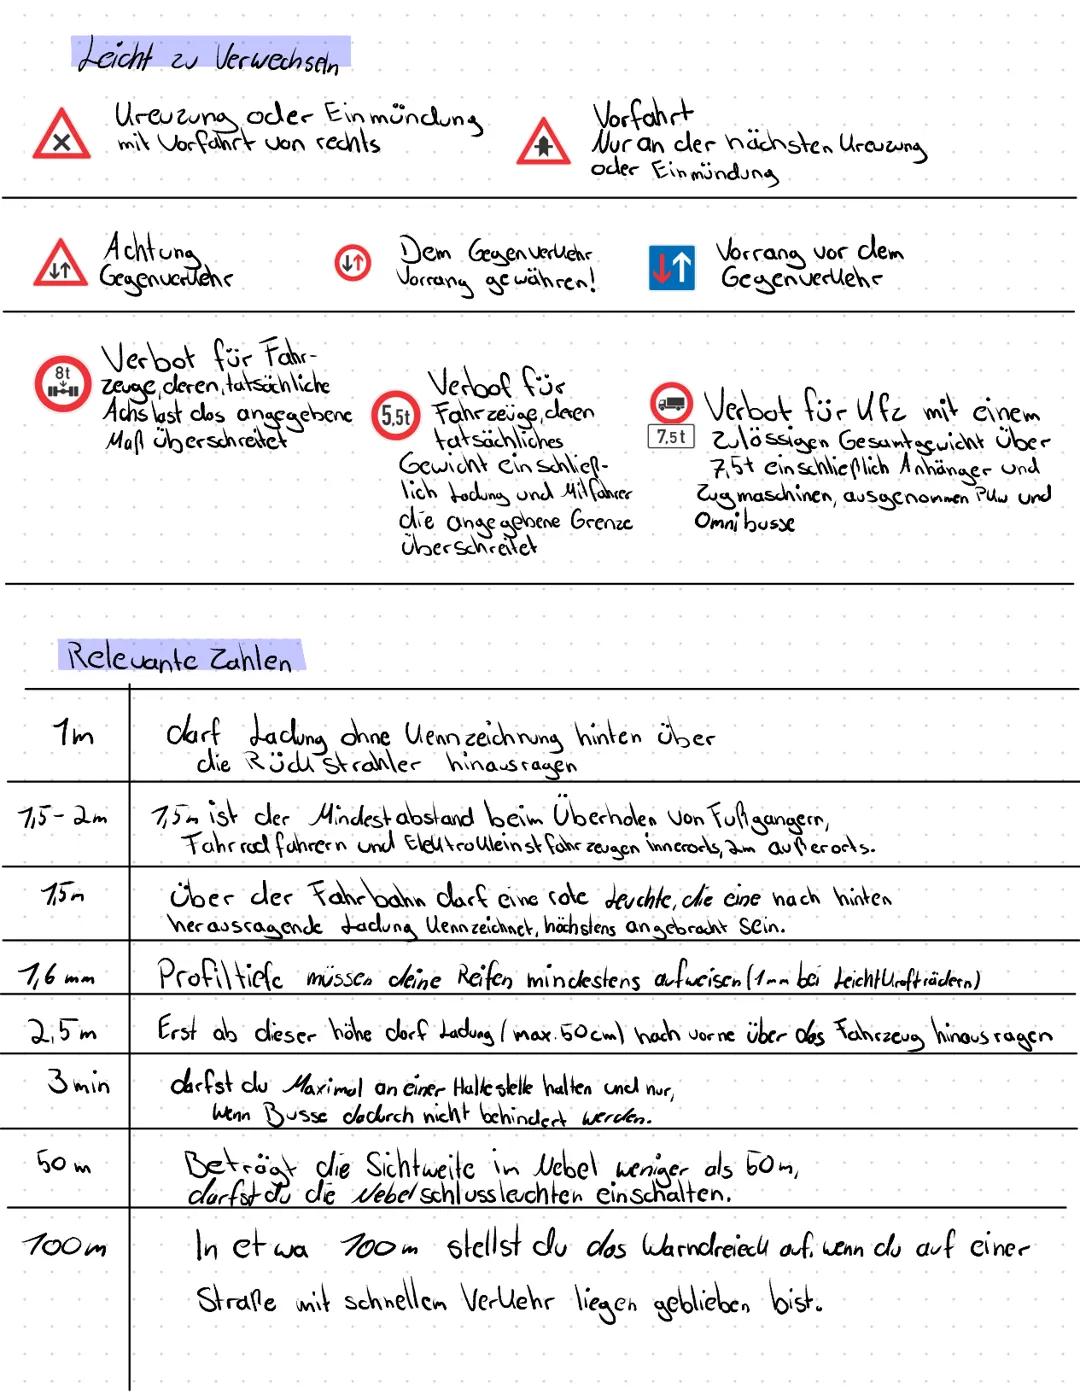 Leicht zu Verwechseln
Kreuzung oder Einmündung
mit Vorfahrt von rechts
Vorfahrt
Nur an der nächsten Kreuzung
oder Einmündung
Achtung
Gegenverkehr
Dem Gegenverkehr
Vorrang gewähren!
Vorrang vor dem
Gegenverkehr
8t
Verbot für Fahr-
zeuge, deren, tatsächliche
Achslast das angegebene
Maß überschreitet
5,5t
Verbot für
Fahrzeuge, deren
tatsächliches
Gewicht einschließ-
lich Ladung und Mitfahrer
die angegebene Grenze
überschreitet
7,5t
Verbot für Kfz mit einem
zulässigen Gesamtgewicht über
7,5t einschließlich Anhänger und
Zugmaschinen, ausgenommen PKW und
Omnibusse
Relevante Zahlen
1m
darf Ladung ohne Kennzeichnung hinten über
die Rückstrahler hinausragen
1,5-2m
1,5m ist der Mindestabstand beim Überholen von Fußgängern,
Fahrradfahrern und Elektrokleinstfahrzeugen innerorts, 2m außerorts.
1,5m
Über der Fahrbahn darf eine rote Leuchte, die eine nach hinten
herausragende Ladung Kennzeichnet, höchstens angebracht Sein.
1,6 mm
Profiltiefe müssen deine Reifen mindestens aufweisen (1mm bei Leichtkrafträdern)
2,5m
Erst ab dieser höhe darf Ladung (max. 50cm) nach vorne über das Fahrzeug hinausragen
3 min
darfst du Maximal an einer Haltestelle halten und nur,
wenn Busse dadurch nicht behindert werden.
50 m
Beträgt die Sichtweite in Nebel weniger als 50m,
darfst du die Nebelschlussleuchten einschalten.
100m
In etwa 100m stellst du das Warndreieck auf, wenn du auf einer
Straße mit schnellem Verkehr liegen geblieben bist.